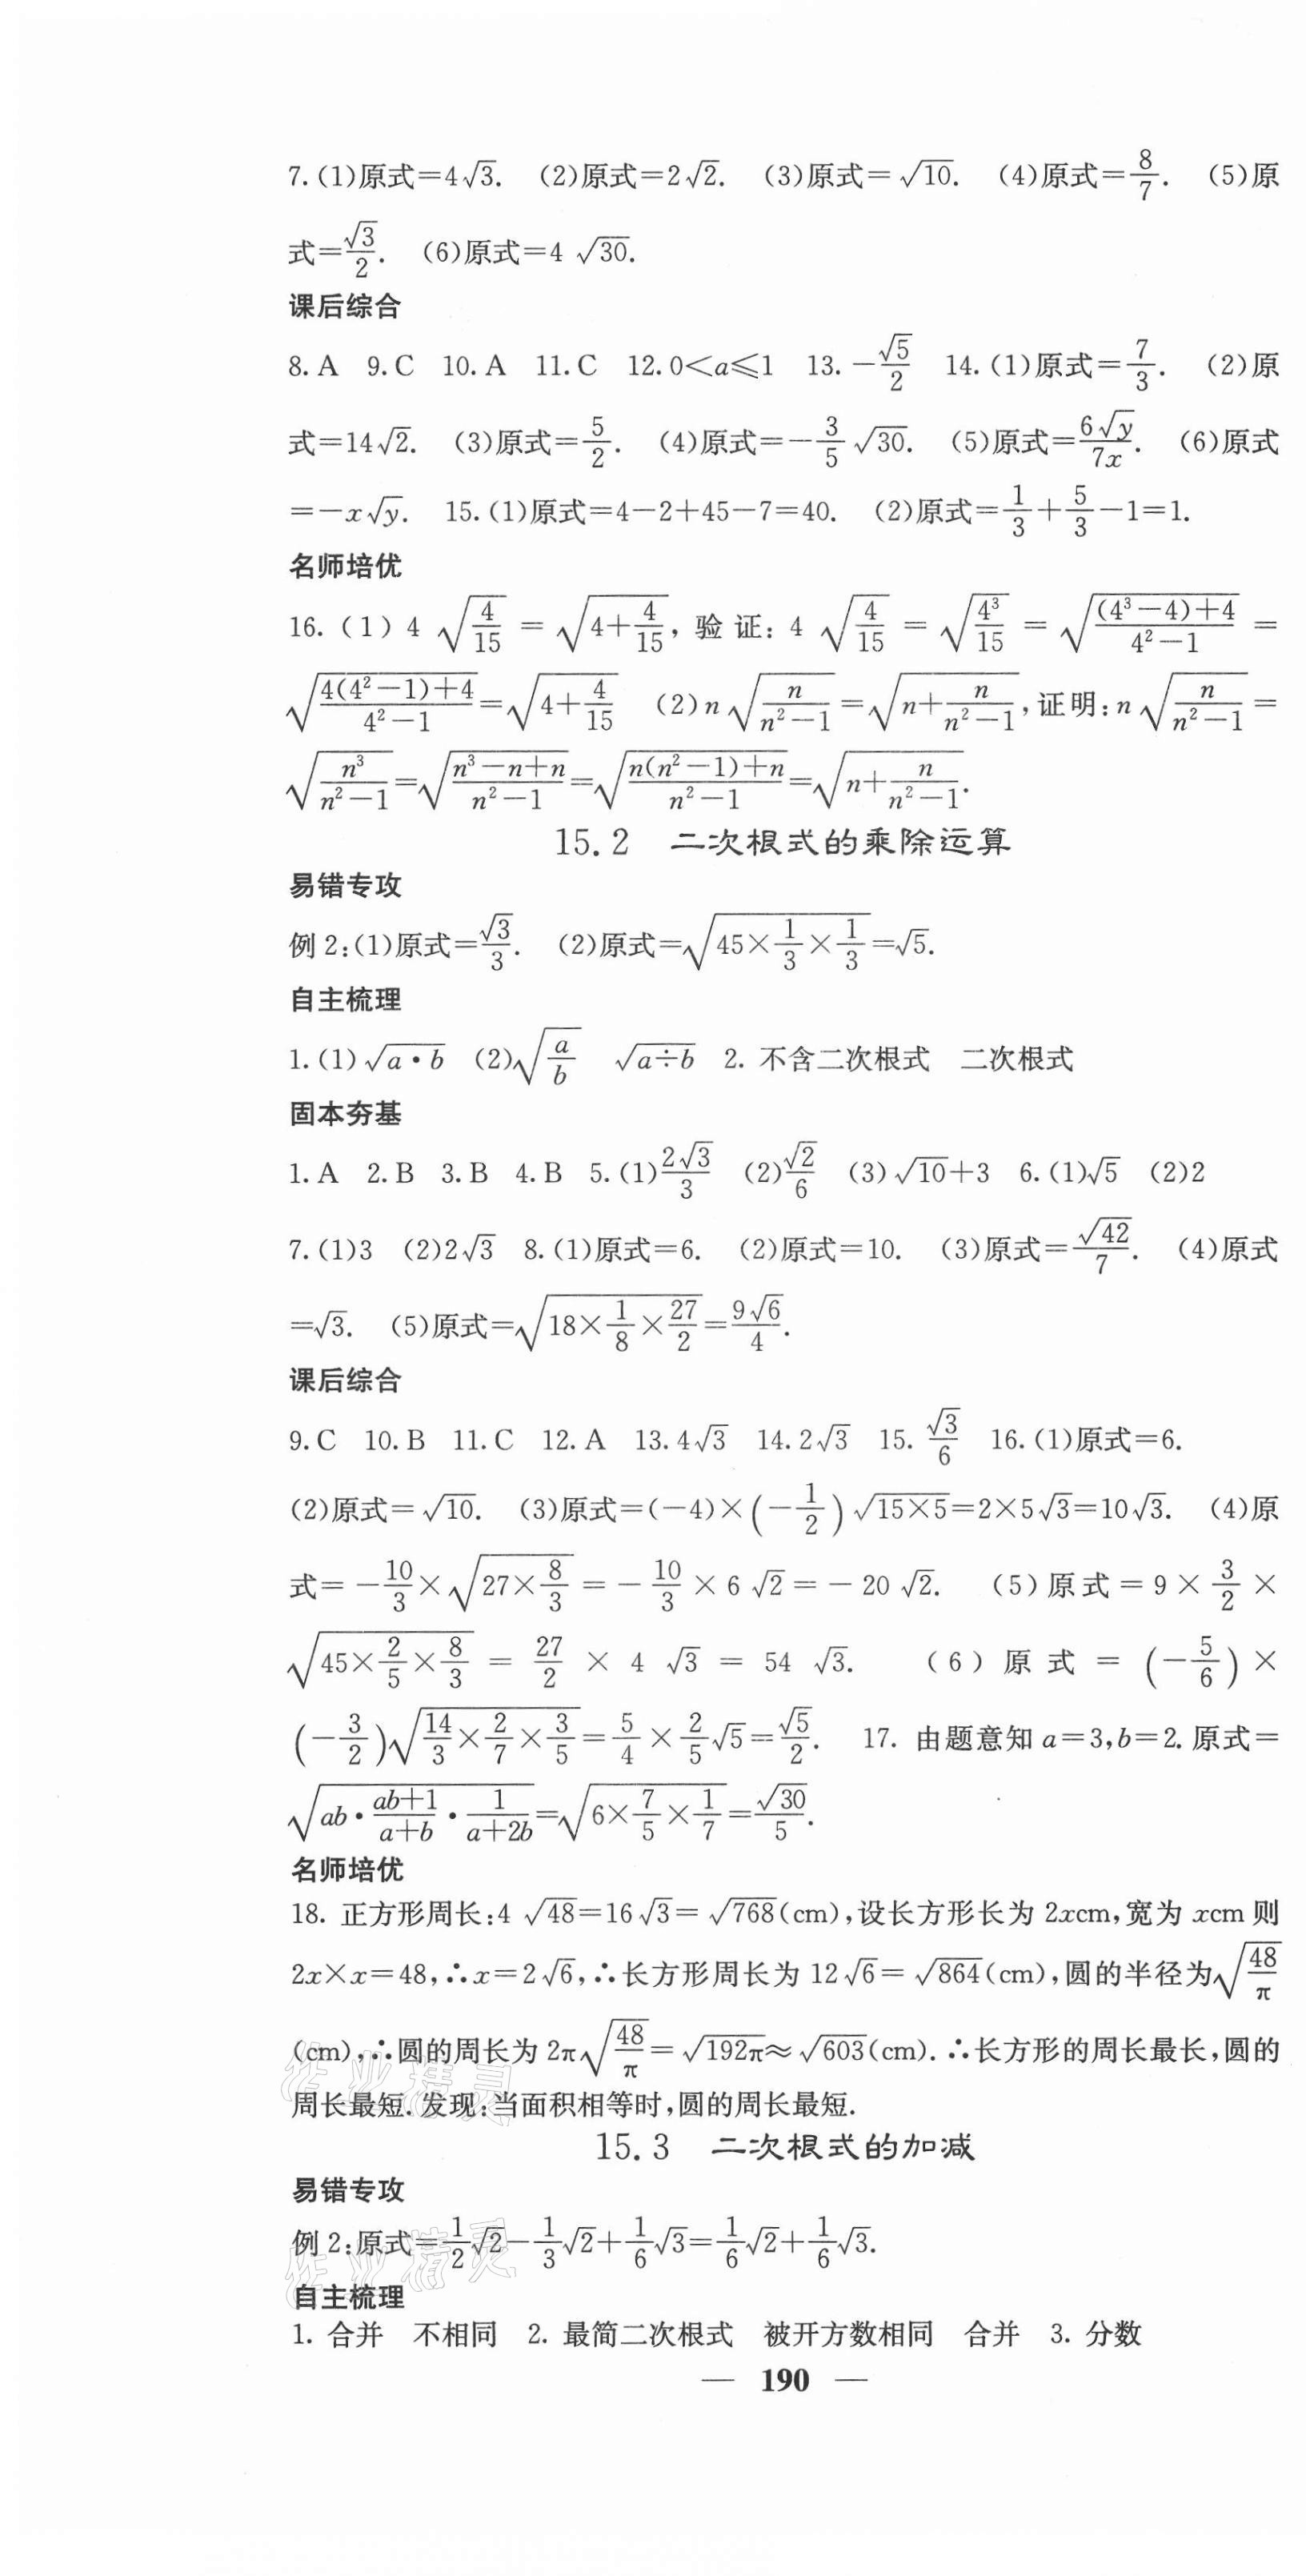 7.(1)原式=4√3. (2)原式=2√2. (3)原式=√10. (4)原式=8/7. (5)原
式=√3/2. (6)原式=4√30.
课后综合
8.A 9.C 10.A 11.C 12.0<a⩽1 13.-√5/2 14.(1)原式=7/3. (2)原
式=14√2. (3)原式=5/2. (4)原式=-3/5√30. (5)原式=6√y/7x. (6)原式
=-x√y. 15.(1)原式=4-2+45-7=40. (2)原式=1/3+5/3-1=1.
名师培优
16.(1)4√(4/15)=√(4+4/15),验证:4√(4/15)=√(4³/15)=√(((4³-4)+4)/(4²-1))=
√((4(4²-1)+4)/(4²-1))=√(4+4/15) (2)n√(n/(n²-1))=√(n+n/(n²-1)),证明:n√(n/(n²-1))=
√(n³/(n²-1))=√((n³-n+n)/(n²-1))=√((n(n²-1)+n)/(n²-1))=√(n+n/(n²-1)).
15.2 二次根式的乘除运算
易错专攻
例2:(1)原式=√3/3. (2)原式=√(45×1/3×1/3)=√5.
自主梳理
1.(1)√(a·b) (2)√(a/b) √(a÷b) 2. 不含二次根式 二次根式
固本夯基
1.A 2.B 3.B 4.B 5.(1)2√3/3 (2)√2/6 (3)√10+3 6.(1)√5 (2)2
7.(1)3 (2)2√3 8.(1)原式=6. (2)原式=10. (3)原式=√42/7. (4)原式
=√3. (5)原式=√(18×1/8×27/2)=9√6/4.
课后综合
9.C 10.B 11.C 12.A 13.4√3 14.2√3 15.√3/6 16.(1)原式=6.
(2)原式=√10. (3)原式=(-4)×(-1/2)√(15×5)=2×5√3=10√3. (4)原
式=-10/3×√(27×8/3)=-10/3×6√2=-20√2. (5)原式=9×3/2×
√(45×2/5×8/3)=27/2×4√3=54√3. (6)原式=(-5/6)×
(-3/2)√(14/3×2/7×3/5)=5/4×2/5√5=√5/2. 17. 由题意知a=3,b=2.原式=
√(ab·(ab+1)/(a+b)·1/(a+2b))=√(6×7/5×1/7)=√30/5.
名师培优
18. 正方形周长:4√48=16√3=√768(cm),设长方形长为2xcm,宽为xcm则
2x×x=48,∴x=2√6,∴长方形周长为12√6=√864(cm),圆的半径为√(48/π)
(cm),∴圆的周长为2π√(48/π)=√(192π)≈√603(cm).∴长方形的周长最长,圆的
周长最短.发现:当面积相等时,圆的周长最短.
15.3 二次根式的加减
易错专攻
例2:原式=1/2√2-1/3√2+1/6√3=1/6√2+1/6√3.
自主梳理
1. 合并 不相同 2. 最简二次根式 被开方数相同 合并 3. 分数
— 190 —
作业精灵
作业精灵